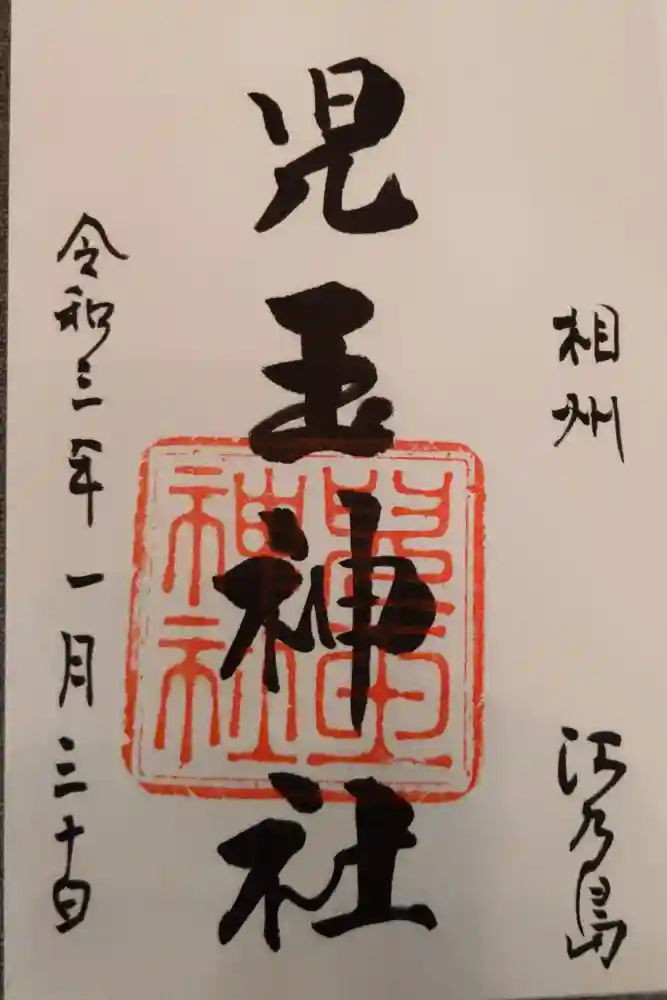 相州 江乃島
児玉神社
令和三年一月三十日
兒玉
神社